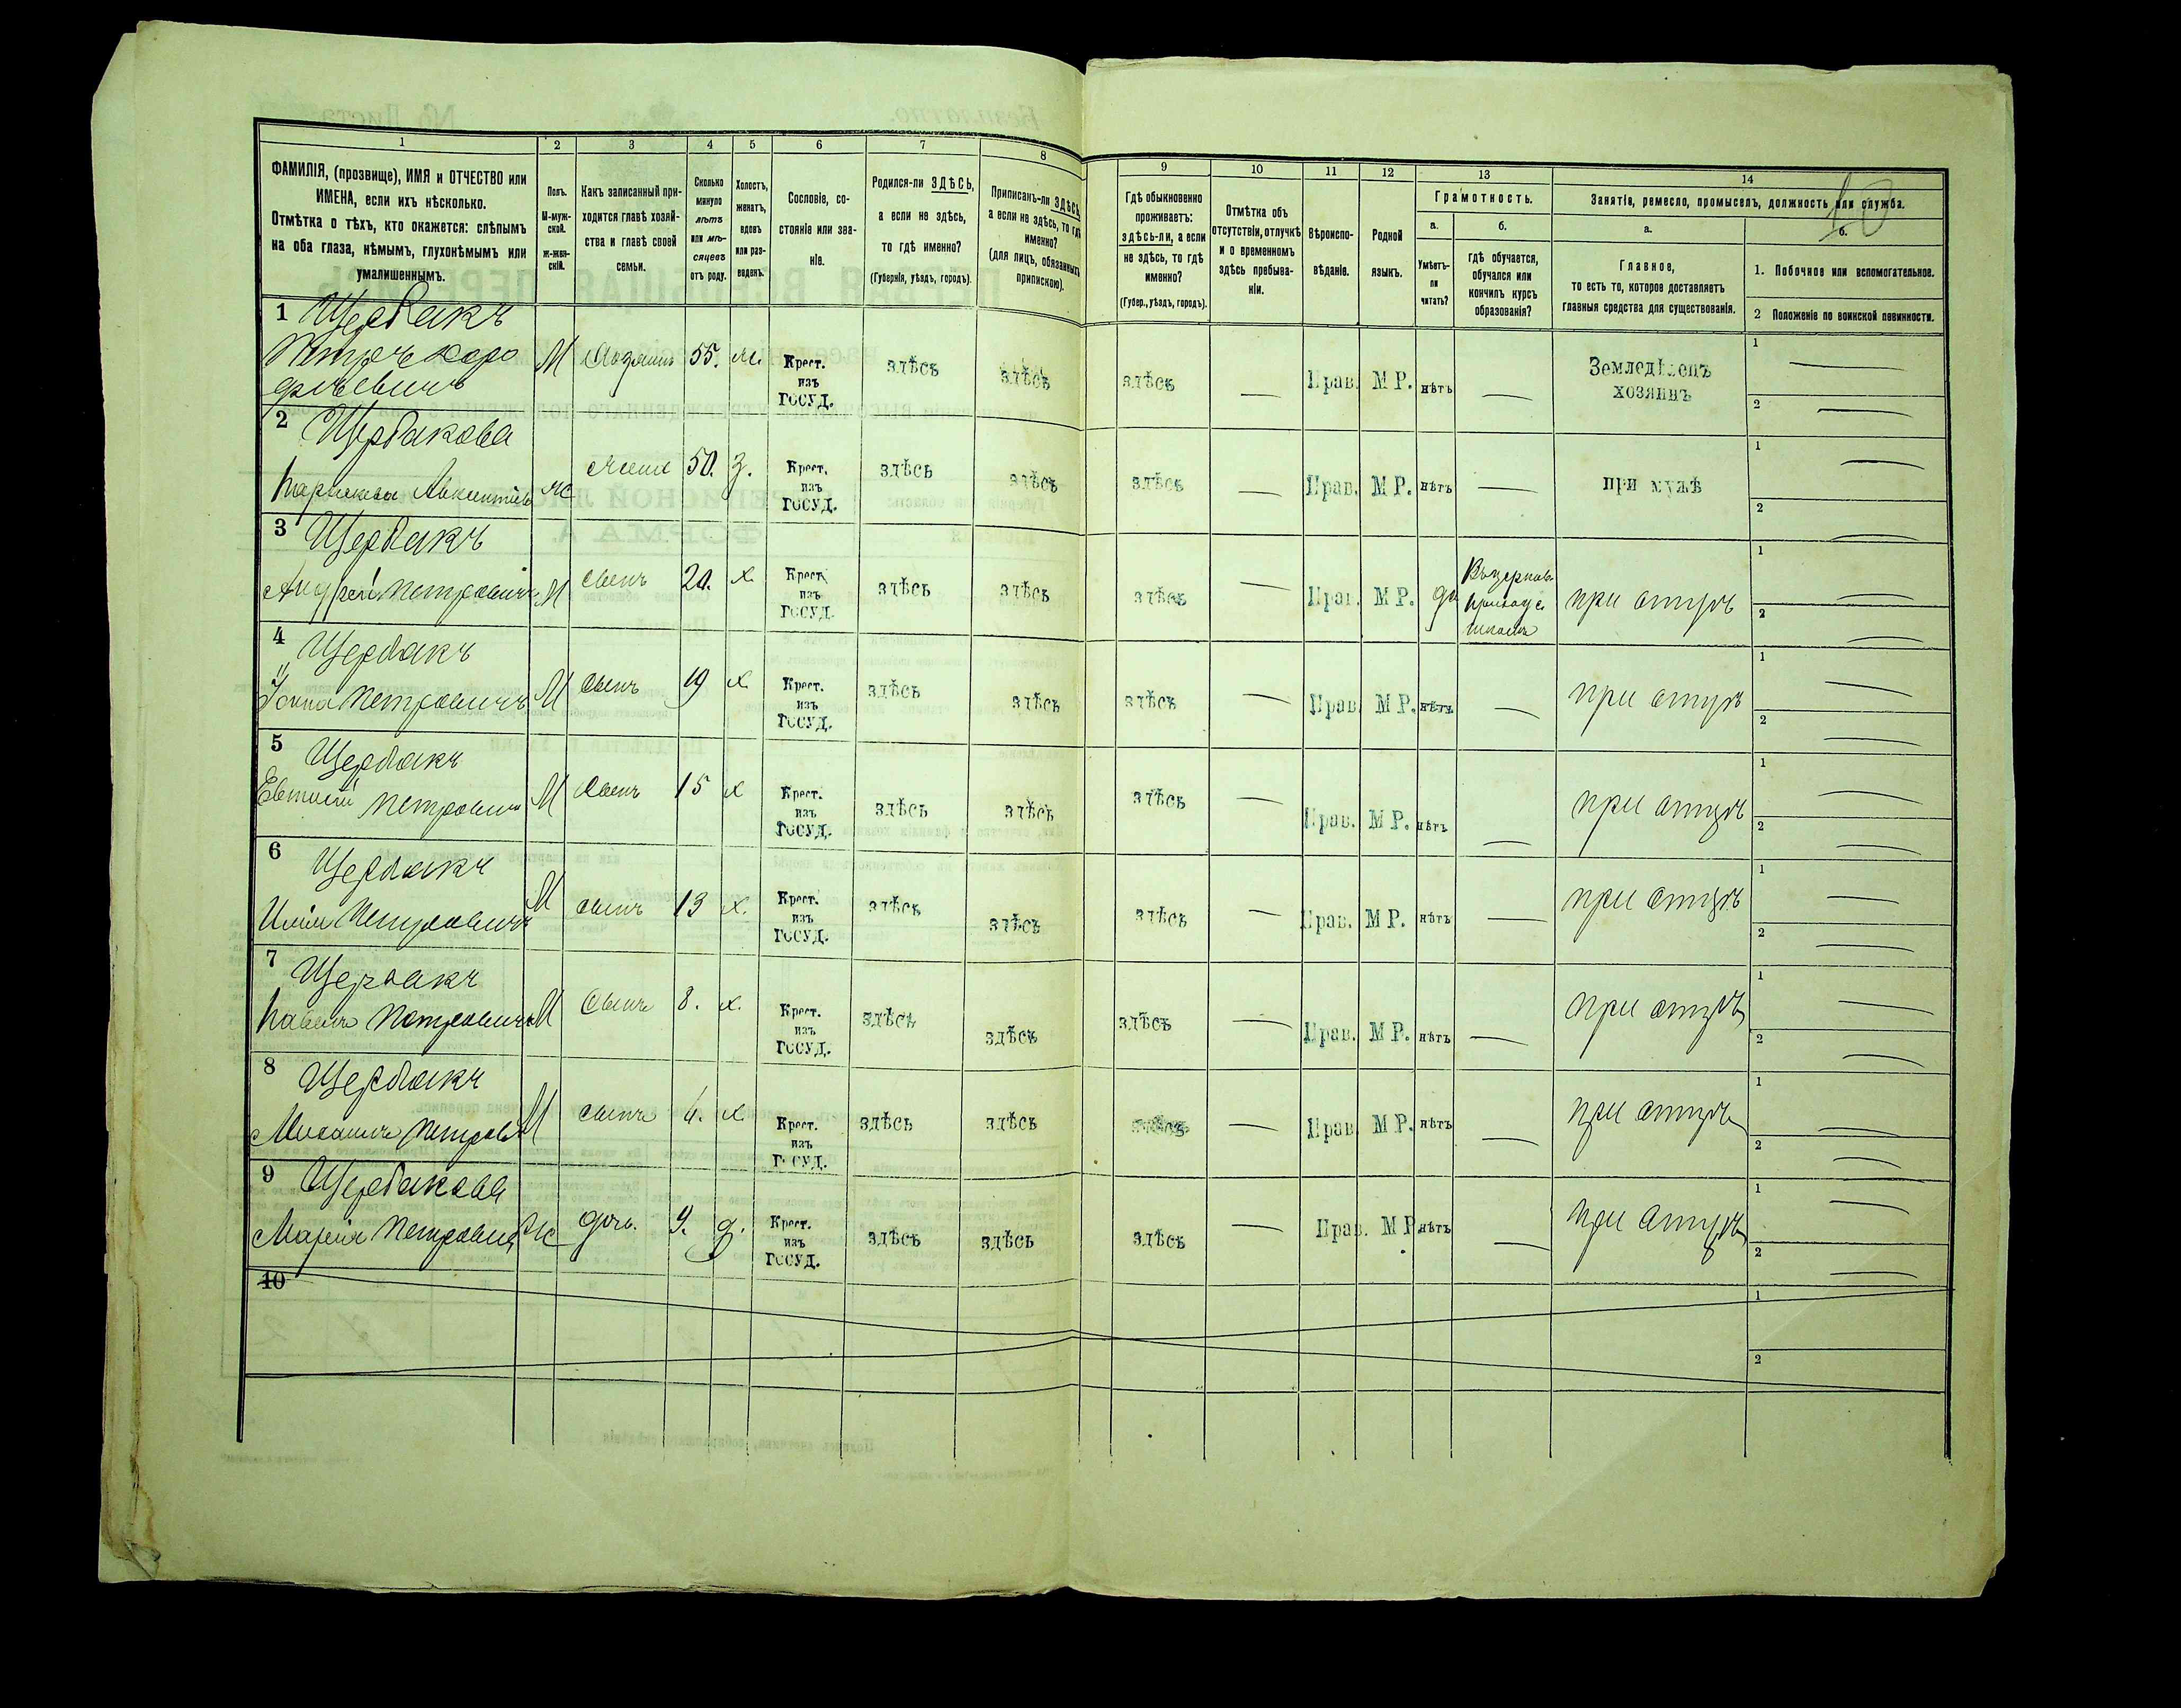 10
1 2 3 4 5 6 7 8 9 10 11 12 13 14
ФАМИЛІЯ, (прозвище), ИМЯ и ОТЧЕСТВО или
ИМЕНА, если ихъ нѣсколько.
Отмѣтка о тѣхъ, кто окажется: слѣпымъ
на оба глаза, нѣмымъ, глухонѣмымъ или
умалишеннымъ.
Полъ.
М-муж-
ской.
ж-жен-
скій.
Какъ записанный при-
ходится главѣ хозяй-
ства и главѣ своей
семьи.
Сколько
минуло
лѣтъ
или мѣ-
сяцевъ
отъ роду.
Холостъ,
женатъ,
вдовъ
или раз-
веденъ.
Сословіе, со-
стояніе или зва-
ніе.
Родился-ли ЗДѢСЬ,
а если не здѣсь,
то гдѣ именно?
(Губернія, уѣздъ, городъ).
Приписанъ-ли ЗДѢСЬ,
а если не здѣсь, то гдѣ
именно?
(для лицъ, обязанныхъ
припискою).
Гдѣ обыкновенно
проживаетъ:
здѣсь-ли, а если
не здѣсь, то гдѣ
именно?
(Губер., уѣздъ, городъ).
Отмѣтка объ
отсутствіи, отлучкѣ
и о временномъ
здѣсь пребыва-
ніи.
Вѣроиспо-
вѣданіе.
Родной
языкъ.
Грамотность.
а.
Умѣетъ-
ли
читать?
б.
гдѣ обучается,
обучался или
кончилъ курсъ
образованія?
Занятіе, ремесло, промыселъ, должность или служба.
а.
Главное,
то есть то, которое доставляетъ
главныя средства для существованія.
б.
1. Побочное или вспомогательное.
2 Положеніе по воинской повинности.
1 Щербакъ
Петръ
М Хозяинъ 55. Крест. изъ ГОСУД. здѣсь здѣсь здѣсь — Прав. М Р. нѣтъ — Земледѣлецъ хозяинъ 1 — 2 —
2 Щербакова
Ж жена 50. З. Крест. изъ ГОСУД. здѣсь здѣсь здѣсь — Прав. М Р. нѣтъ — при мужѣ 1 — 2 —
3 Щербакъ
Андрей Петровичъ М сынъ 20. х. Крест. изъ ГОСУД. здѣсь здѣсь здѣсь — Прав. М Р. да школѣ при отцѣ 1 — 2 —
4 Щербакъ
Петровичъ М сынъ 19 х. Крест. изъ ГОСУД. здѣсь здѣсь здѣсь — Прав. М Р. нѣтъ — при отцѣ 1 — 2 —
5 Щербакъ
Евтихій Петрович М Сынъ 15 х Крест. изъ ГОСУД. здѣсь здѣсь здѣсь — Прав. М Р. нѣтъ — при отцѣ 1 — 2 —
6 Щербакъ
Петровичъ М сынъ 13 х. Крест. изъ ГОСУД. здѣсь здѣсь здѣсь — Прав. М Р. нѣтъ — при отцѣ 1 — 2 —
7 Щербакъ
Павелъ Петровичъ М Сынъ 8. х. Крест. изъ ГОСУД. здѣсь здѣсь здѣсь — Прав. М Р. нѣтъ — при отцѣ 1 — 2 —
8 Щербакъ
Михаилъ Петров М сынъ 4. х Крест. изъ ГОСУД. здѣсь здѣсь здѣсь — Прав. М Р. нѣтъ — при отцѣ 1 — 2 —
9 Щербакова
Марія Петровна Ж дочь. 9. д. Крест. изъ ГОСУД. здѣсь здѣсь здѣсь — Прав. М Р. нѣтъ — при отцѣ 1 — 2 —
10 1 2